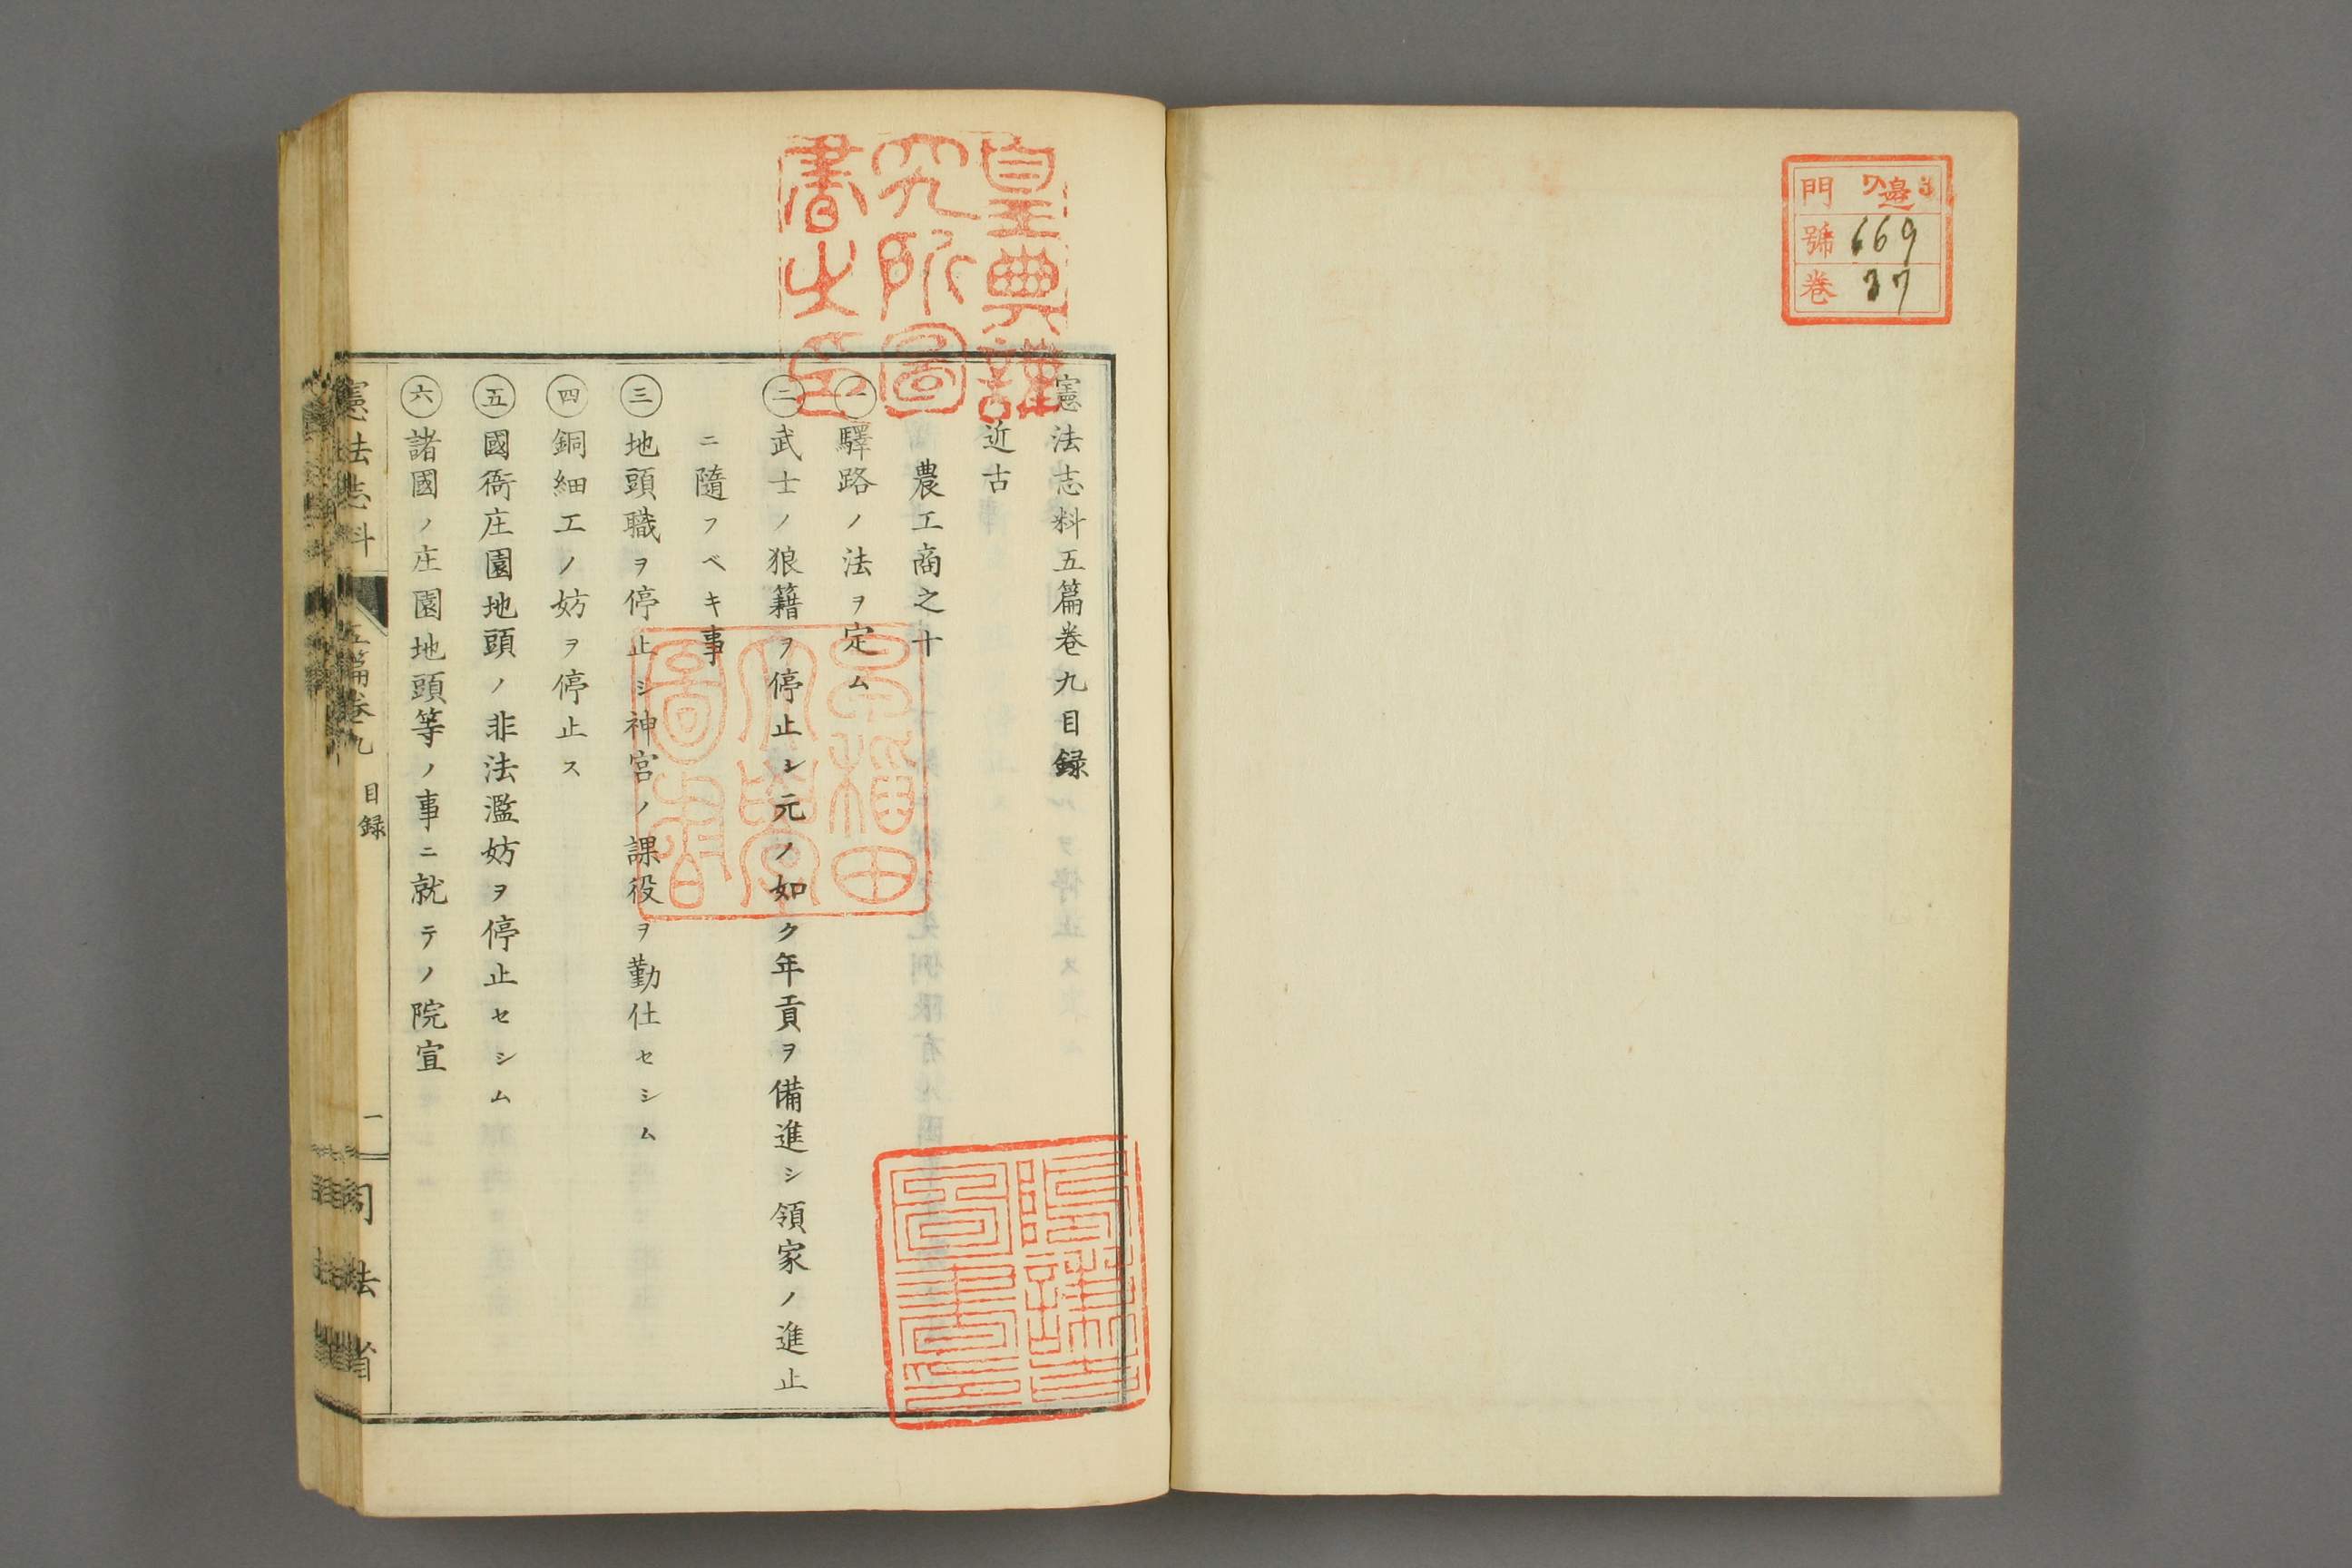 門
號 669
卷 37
皇典講
究所圖
書之印
憲法志料五篇卷九目録
近古
農工商之十
㊀驛路ノ法ヲ定ム
㊁武士ノ狼籍ヲ停止シ元ノ如ク年貢ヲ備進シ領家ノ進止
ニ隨フベキ事
㊂地頭職ヲ停止シ神宮ノ課役ヲ勤仕セシム
㊃銅細工ノ妨ヲ停止ス
㊄國衙庄園地頭ノ非法濫妨ヲ停止セシム
㊅諸國ノ庄園地頭等ノ事ニ就テノ院宣
早稲田
大學
圖書
憲法志料 五篇卷九 目録 一 司法省